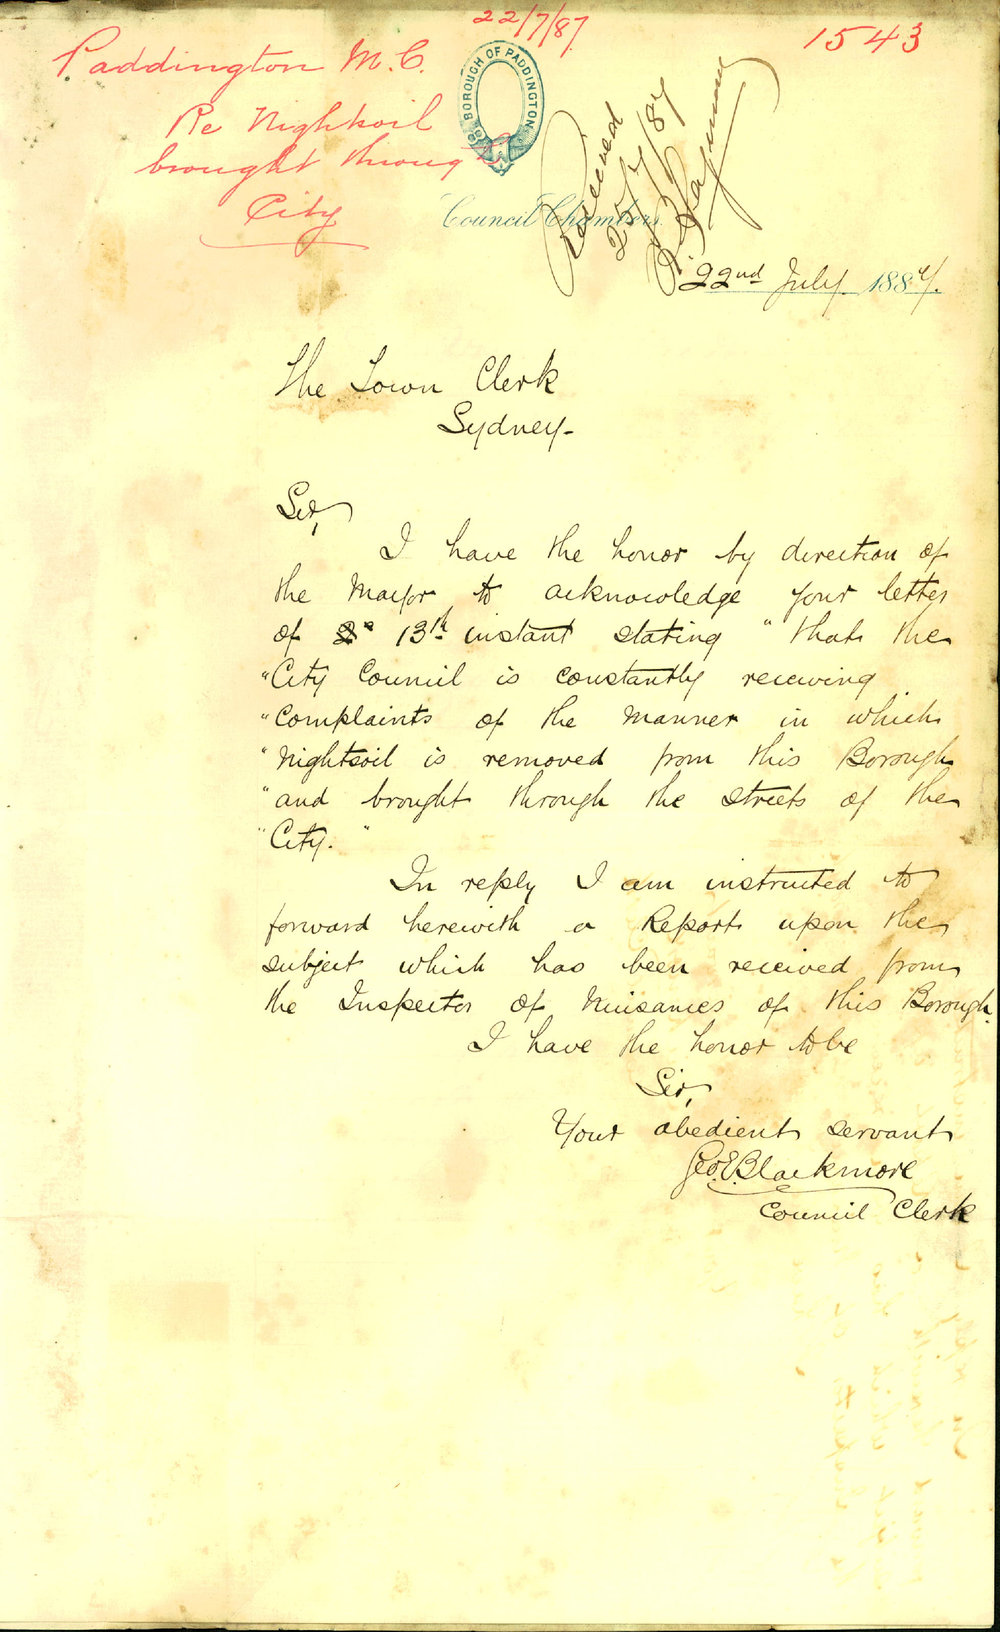 22/7/87
1543
Paddington M.C.
Re Nightsoil
brought through
City
BOROUGH OF PADDINGTON
Received
25/7/87
Council Chambers
22nd July 1887.
The Town Clerk
Sydney-
Sir,
I have the honor by direction of
the Mayor to acknowledge your letter
of 13th instant stating "that the
"City Council is constantly receiving
"Complaints of the manner in which
"Nightsoil is removed from this Borough
"and brought through the streets of the
"City."
In reply I am instructed to
forward herewith a Report upon the
subject which has been received from
the Inspector of Nuisances of this Borough.
I have the honor to be
Sir,
Your obedient servant
Geo. E. Blackmore
Council Clerk